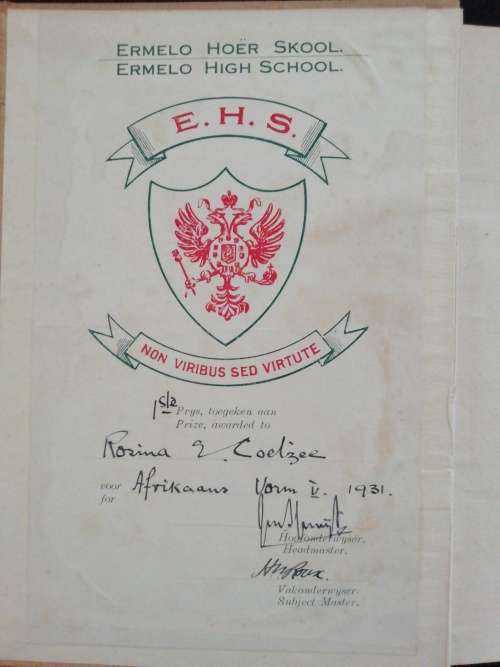 ERMELO HOËR SKOOL.
ERMELO HIGH SCHOOL.
E. H. S.
NON VIRIBUS SED VIRTUTE
1ste Prys, toegeken aan
Prize, awarded to
Rosina E. Coetzee
voor Afrikaans Vorm IV. 1931.
for
Hoofonderwyser.
Headmaster.
Vakonderwyser.
Subject Master.